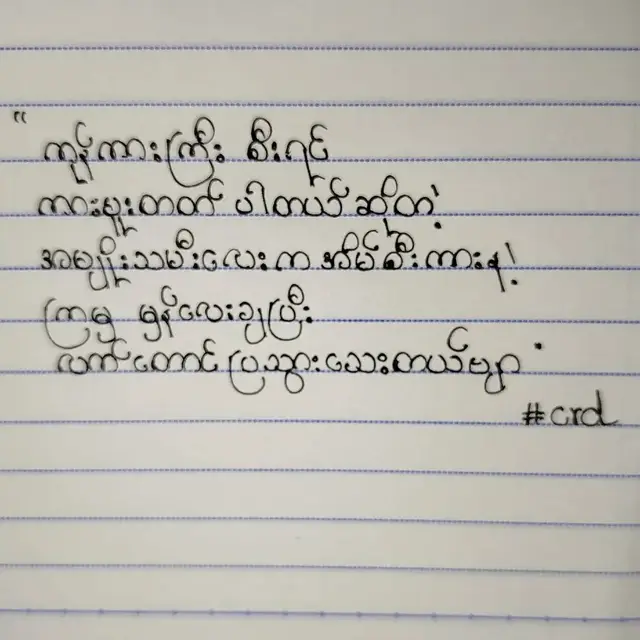 "
ကုန်ကားကြီး စီးရင်
ကားမူးတတ် ပါတယ် ဆိုတဲ့
အမျိုးသမီးလေးက အိမ်စီးကားနဲ့
ကြမှ မှန်လေးချပြီး
လက်တောင် ပြသွားသေးတယ်ဗျာ "
#crd